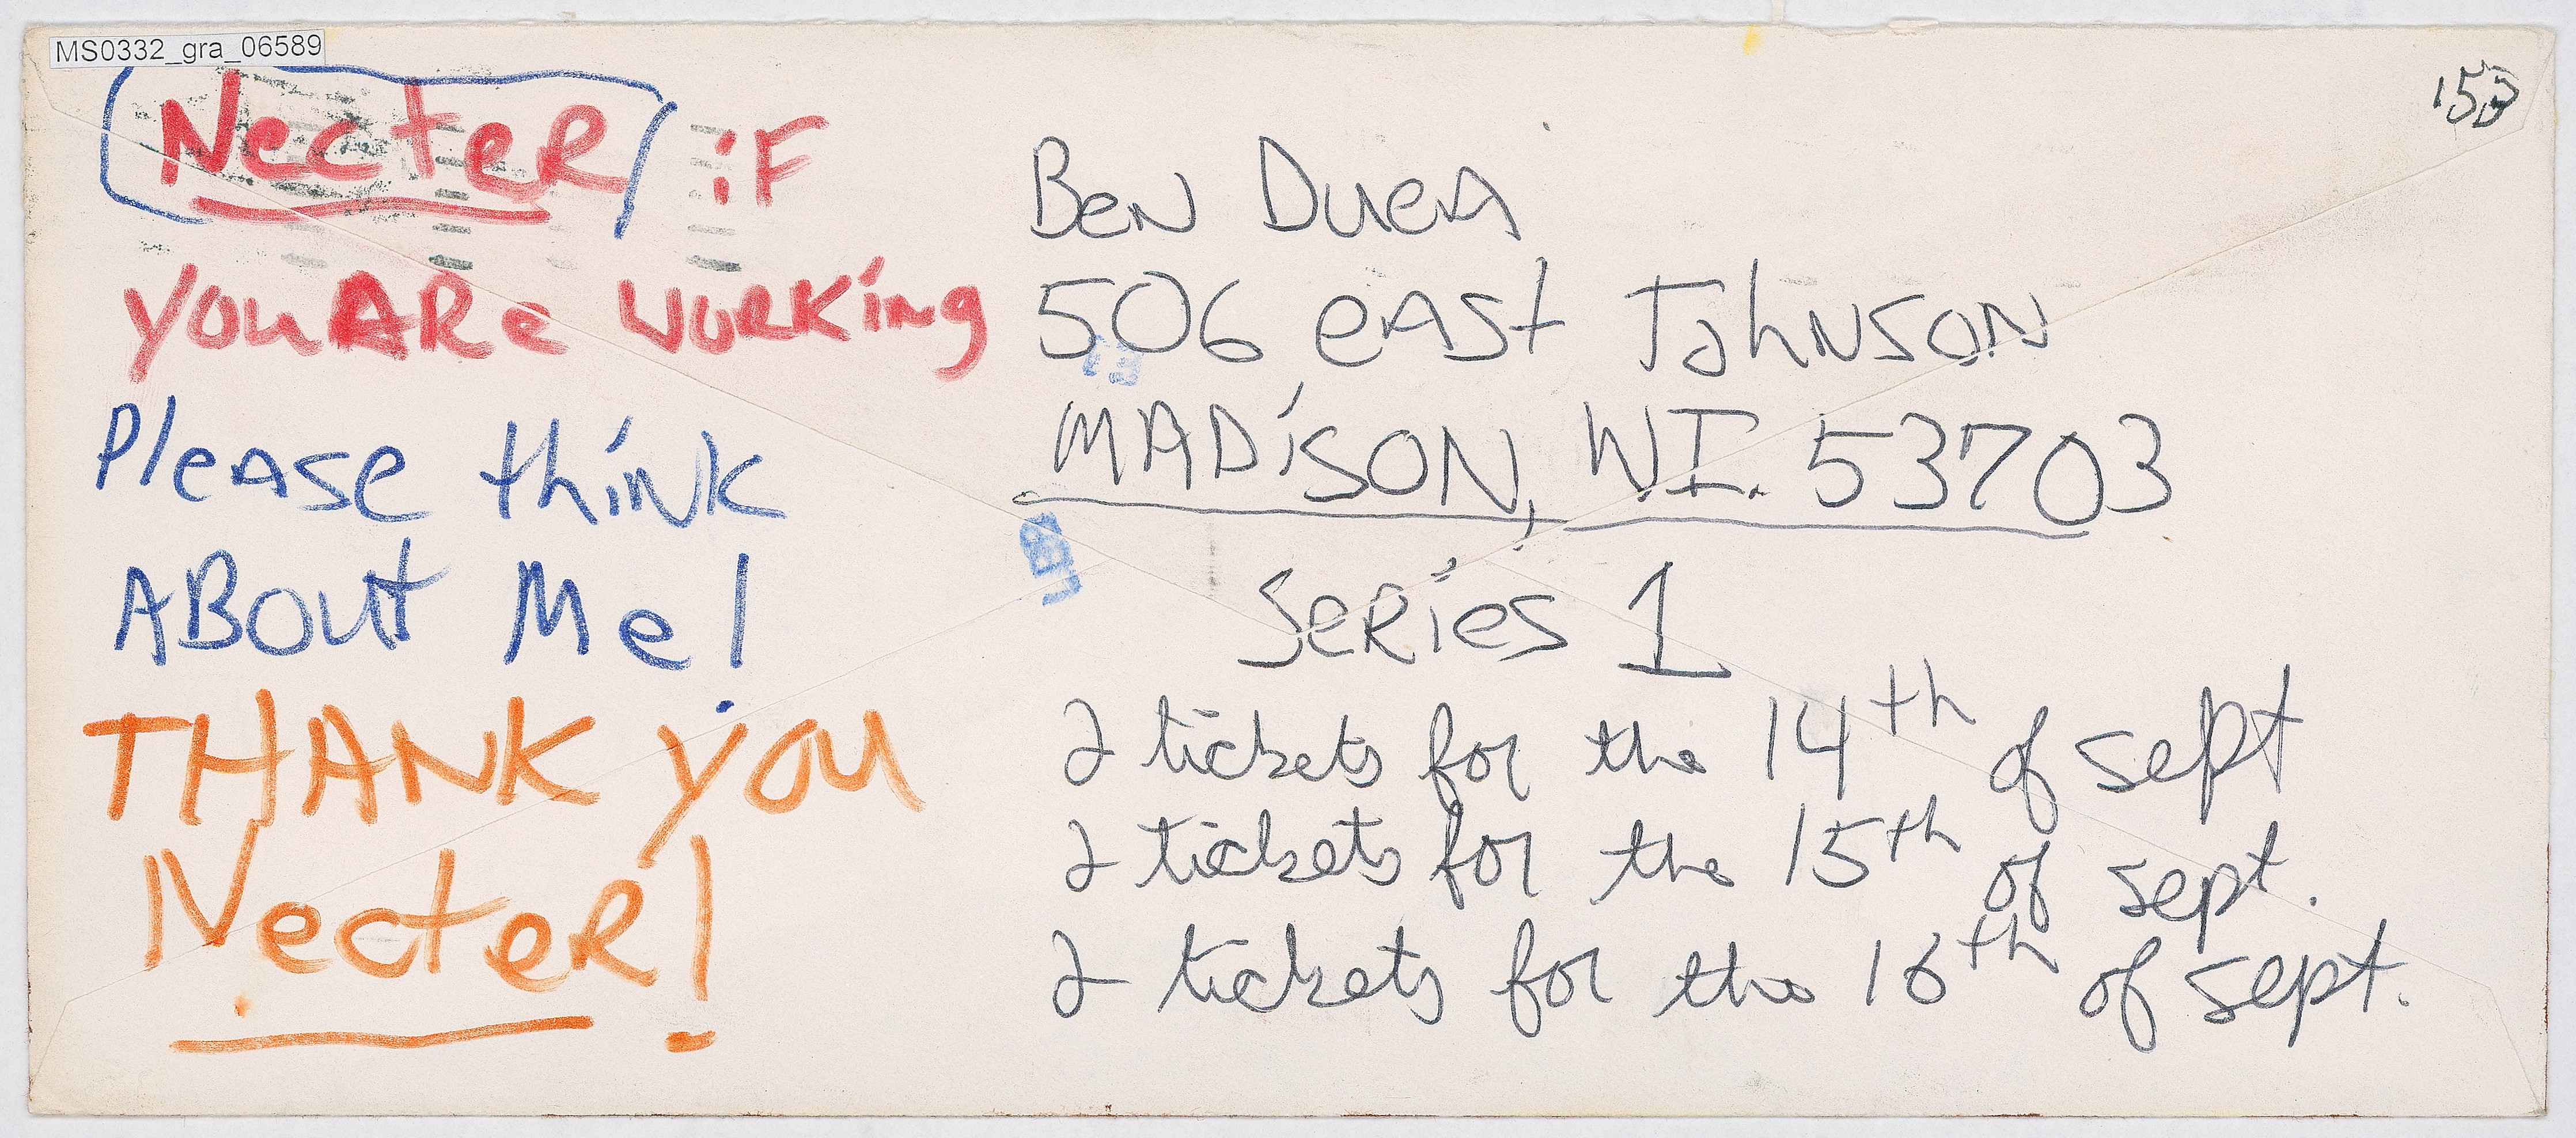 MS0332_gra_06589
NecteR iF
you ARe WORKing
PleASe thiNK
ABOut Me!
THANK YOU
NecteR!
BeN DueA
506 eASt JohNSON
MADiSON, WI. 53703
SeRies 1
2 tickets for the 14th of sept
2 tickets for the 15th of sept.
2 tickets for the 16th of sept.